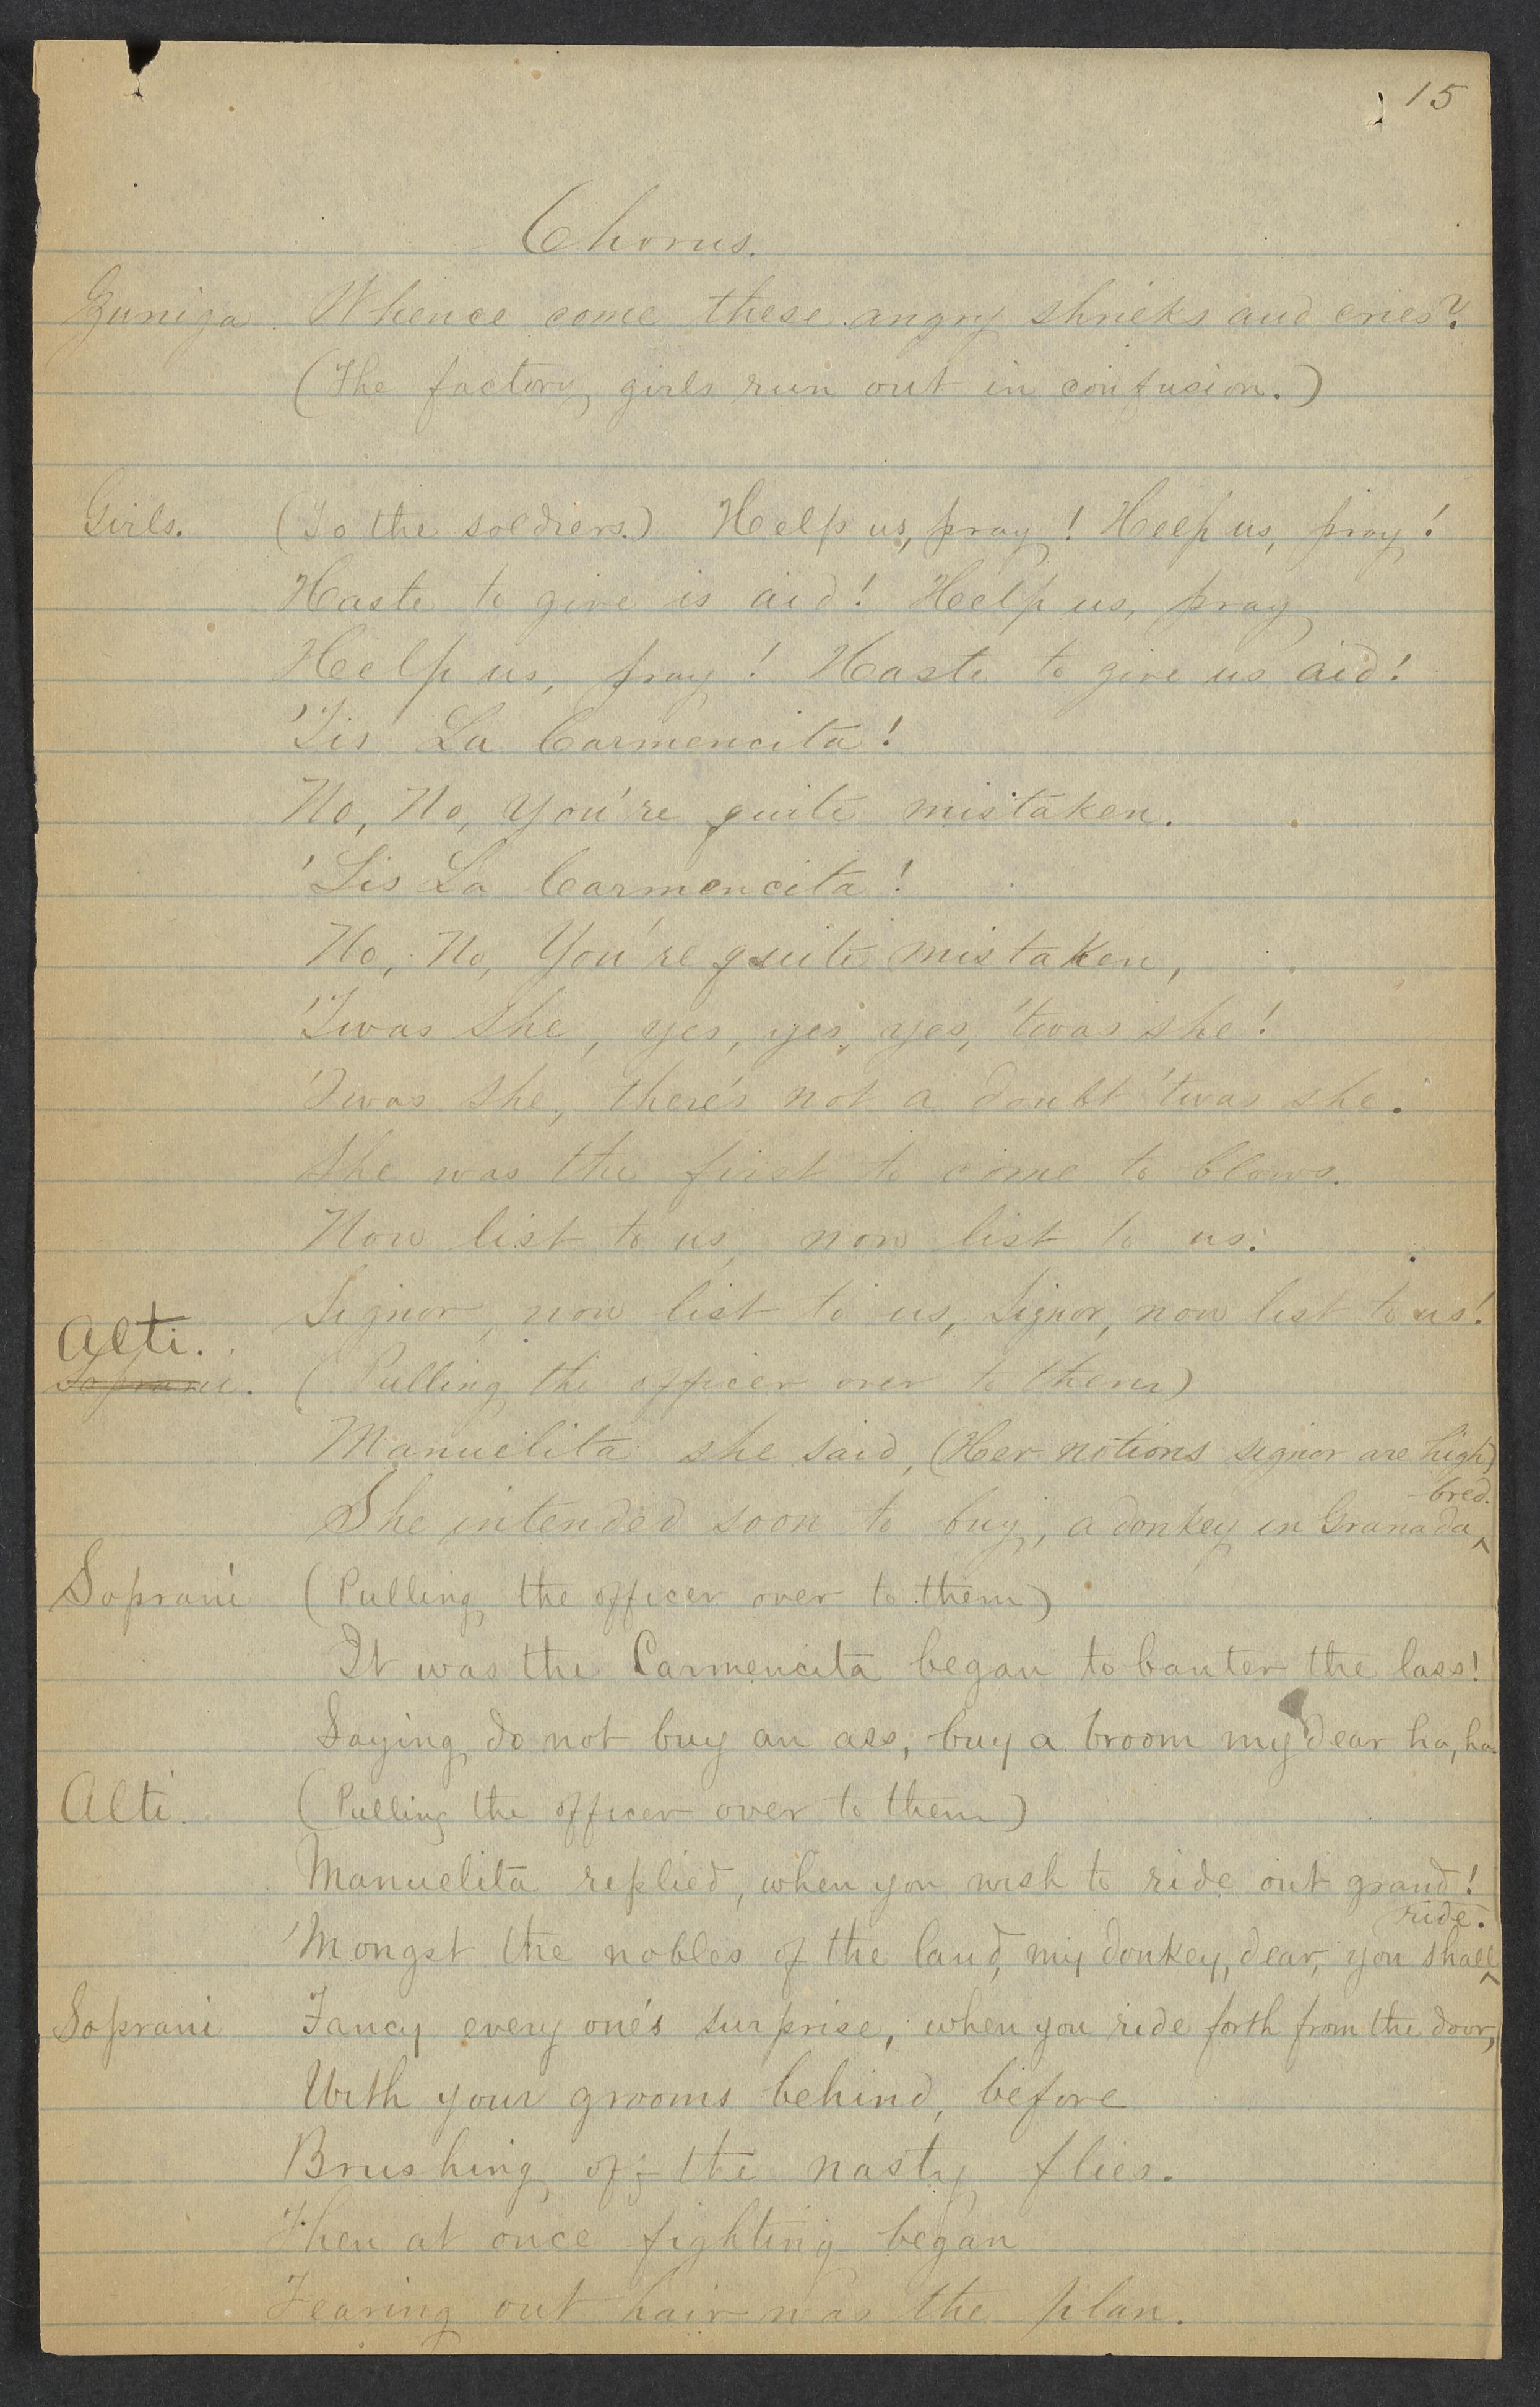 15
Chorus.
Zuniga. Whence come these angry shrieks and cries?
(The factory girls run out in confusion.)
Girls. (To the soldiers.) Help us, pray! Help us, pray!
Haste to give is aid! Help us, pray
Help us, pray! Haste to give us aid!
'Tis La Carmencita!
No, No, You're quite mistaken.
'Tis La Carmencita!
No, No, You're quite mistaken,
'Twas She, yes, yes, yes, 'twas she!
'Twas She, there's not a doubt 'twas she.
She was the first to come to blows.
Now list to us, now list to us.
Signor, now list to us, Signor, now list to us!
Alti.
Soprani. (Pulling the officer over to them)
Manuelita she said, (Her notions signor are high)
bred.
She intended soon to buy, a donkey in Granada,
Soprani (Pulling the officer over to them)
It was the Carmencita began to banter the lass!
Saying, do not buy an ass, buy a broom my dear ha, ha.
Alti. (Pulling the officer over to them)
Manuelita replied, when you wish to ride out grand!
ride.
'Mongst the nobles of the land, my donkey, dear, you shall
Soprani Fancy every one's surprise, when you ride forth from the door,
With your grooms behind, before
Brushing off the nasty flies.
Then at once fighting began
Tearing out hair was the plan.